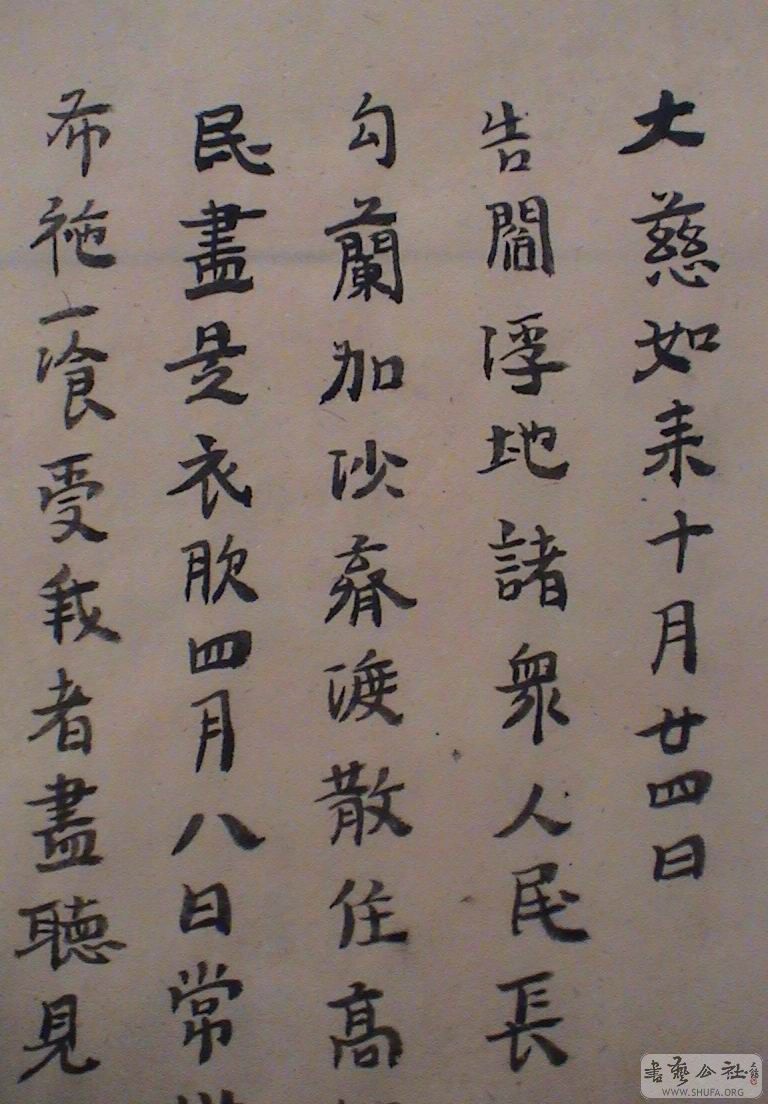 大慈如来十月廿四日
告閻浮地諸衆人民長
勾蘭加沙齊渡散住高
民盡是衣服四月八日常
布施一飡受我者盡聽見
書藝公社
WWW.SHUFA.ORG